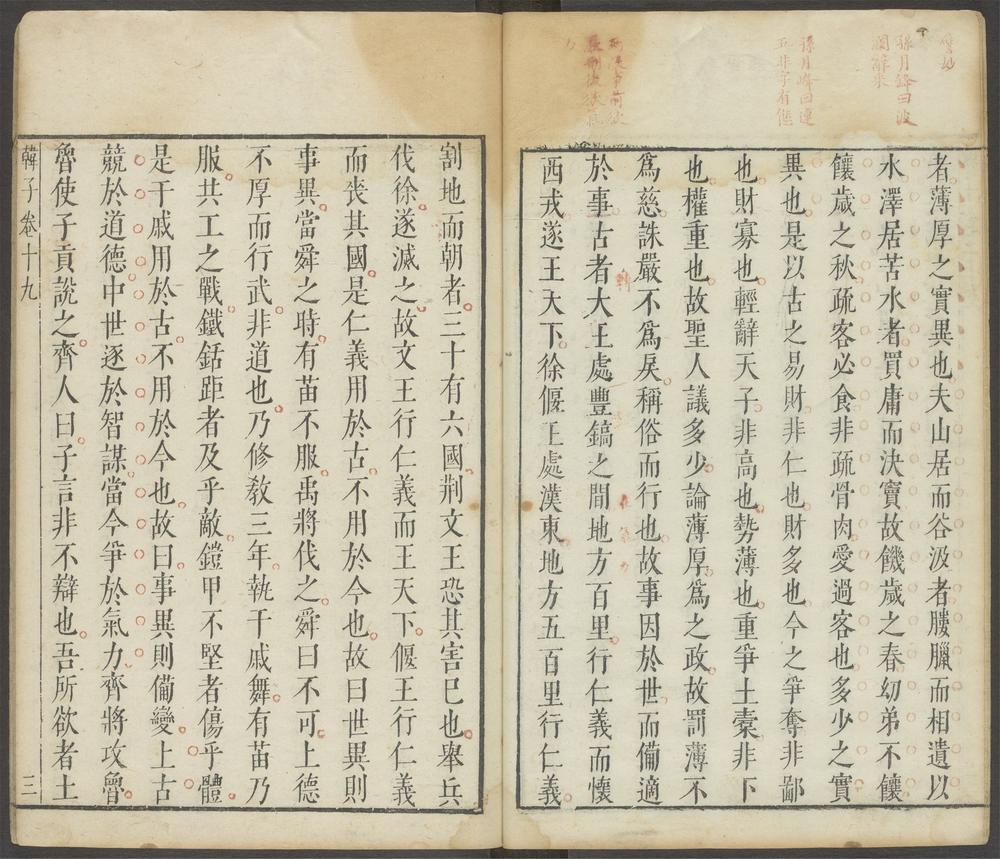 者薄厚之實異也夫山居而谷汲者膢臘而相遺以
水澤居苦水者買庸而決竇故饑歲之春幼弟不饟
饟歲之秋疏客必食非疏骨肉愛過客也多少之實
異也是以古之易財非仁也財多也今之爭奪非鄙
也財寡也輕辭天子非高也勢薄也重爭土橐非下
也權重也故聖人議多少論薄厚爲之政故罰薄不
爲慈誅嚴不爲戾稱俗而行也故事因於世而備適
於事古者大王處豐鎬之間地方百里行仁義而懷
西戎遂王天下徐偃王處漢東地方五百里行仁義
割地而朝者三十有六國荆文王恐其害已也舉兵
伐徐遂滅之故文王行仁義而王天下偃王行仁義
而喪其國是仁義用於古不用於今也故曰世異則
事異當舜之時有苗不服禹將伐之舜曰不可上德
不厚而行武非道也乃修敎三年執干戚舞有苗乃
服共工之戰鐵銛距者及乎敵鎧甲不堅者傷乎體
是干戚用於古不用於今也故曰事異則備變上古
競於道德中世逐於智謀當今爭於氣力齊將攻魯
魯使子貢說之齊人曰子言非不辯也吾所欲者土
韓子卷十九
三
孫月峰曰波
孫月峰曰連
五非字有態